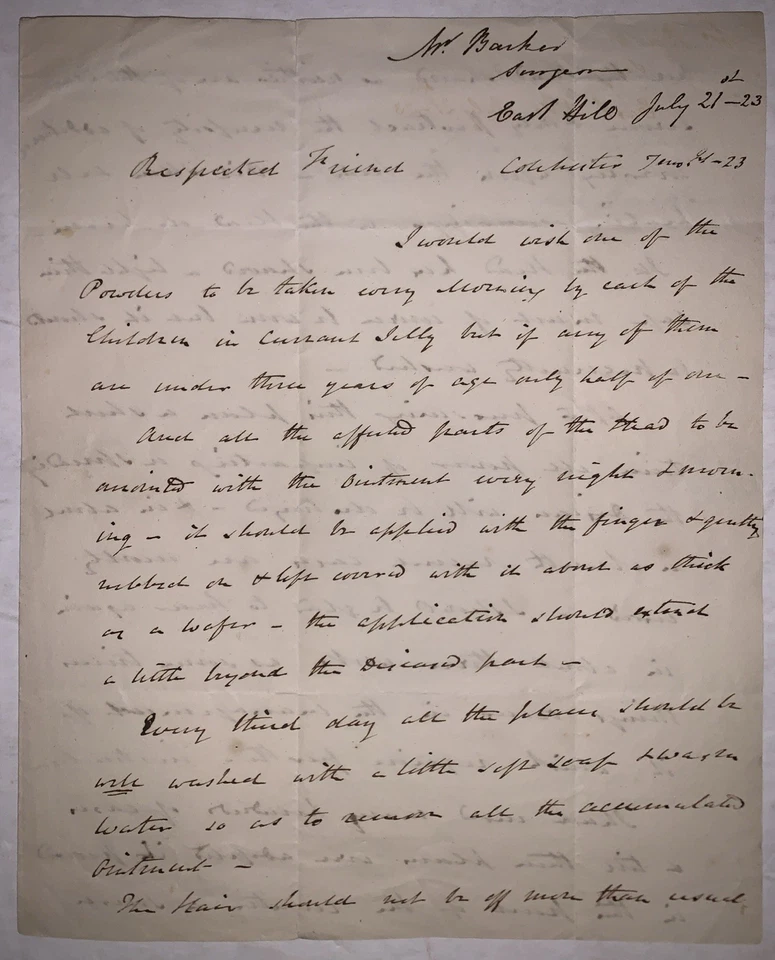 Mr. Barker
Surgeon
East Hill July 21st - 23
Respected Friend Colchester 7mo - 23
I would wish one of the
Powders to be taken every Morning by each of the
Children in Currant Jelly but if any of them
are under three years of age only half of one -
And all the affected parts of the Head to be
anointed with the Ointment every night & morn-
ing - it should be applied with the finger & gently
rubbed on & left covered with it about as thick
as a wafer - the application should extend
a little beyond the Diseased part -
Every third day all the places should be
well washed with a little soft soap & warm
Water so as to remove all the accumulated
Ointment -
The Hair should not be off more than usual